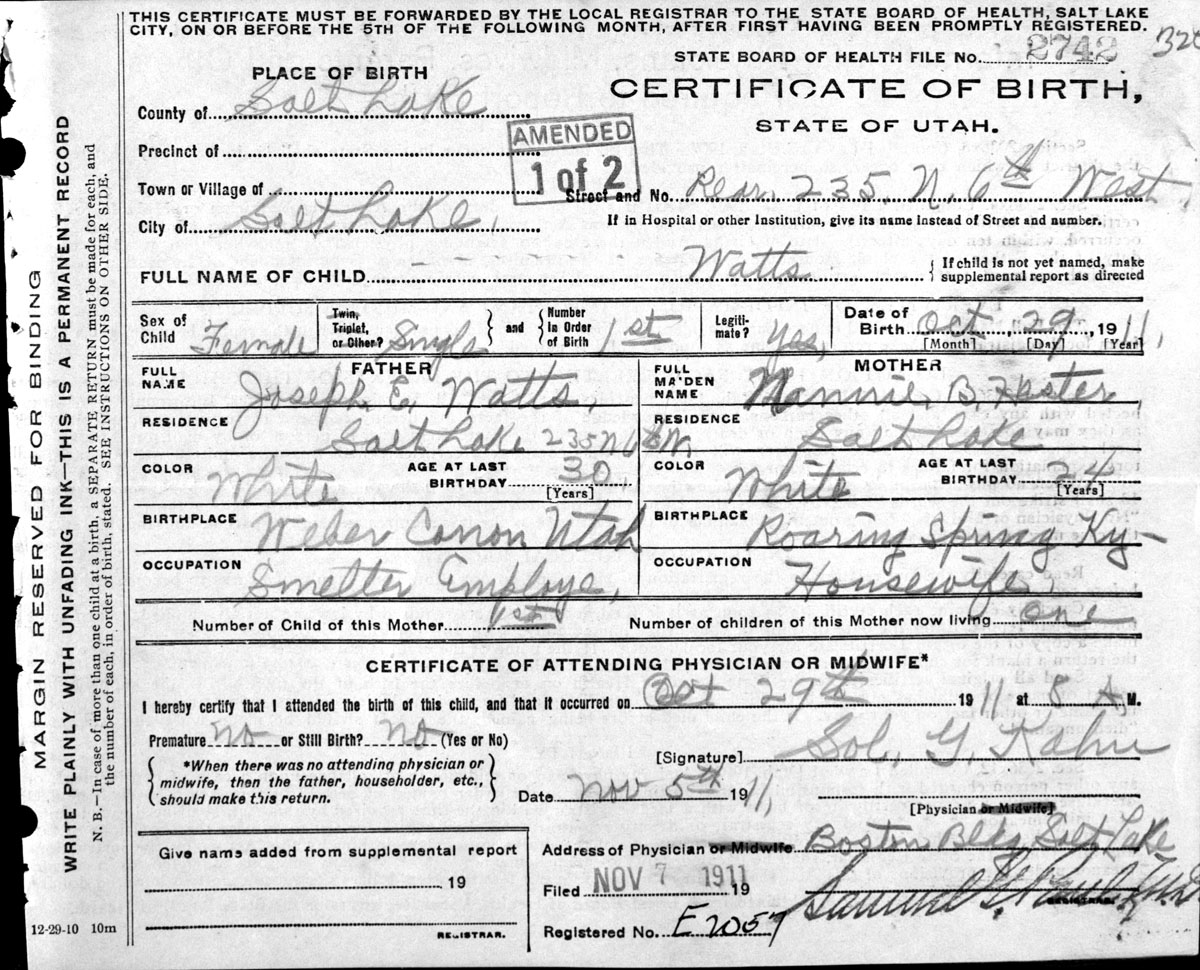 THIS CERTIFICATE MUST BE FORWARDED BY THE LOCAL REGISTRAR TO THE STATE BOARD OF HEALTH, SALT LAKE
CITY, ON OR BEFORE THE 5TH OF THE FOLLOWING MONTH, AFTER FIRST HAVING BEEN PROMPTLY REGISTERED.
STATE BOARD OF HEALTH FILE No. 2742
PLACE OF BIRTH
CERTIFICATE OF BIRTH,
STATE OF UTAH.
County of Salt Lake
AMENDED
1 of 2
Precinct of
Town or Village of
Street and No. Rear 235 N. 6th West
City of Salt Lake,
If in Hospital or other Institution, give its name instead of Street and number.
FULL NAME OF CHILD - Watts
If child is not yet named, make
supplemental report as directed
Sex of Child Female
Twin, Triplet, or Other? Single
and Number in Order of Birth 1st
Legitimate? Yes,
Date of Birth Oct, 29, 1911,
[Month] [Day] [Year]
FATHER
FULL NAME Joseph E. Watts
RESIDENCE Salt Lake 235 N 6 W.
COLOR White
AGE AT LAST BIRTHDAY 30, [Years]
BIRTHPLACE Weber Canon Utah
OCCUPATION Smelter Employe,
MOTHER
FULL MAIDEN NAME Nannie B.
RESIDENCE Salt Lake
COLOR White
AGE AT LAST BIRTHDAY [Years]
BIRTHPLACE Roaring Spring Ky-
OCCUPATION Housewife
Number of Child of this Mother 1st
Number of children of this Mother now living one
CERTIFICATE OF ATTENDING PHYSICIAN OR MIDWIFE*
I hereby certify that I attended the birth of this child, and that it occurred on Oct 29th 1911 at 8 A.M.
Premature no or Still Birth? no (Yes or No)
*When there was no attending physician or
midwife, then the father, householder, etc.,
should make this return.
[Signature] Sol. G. Kahn
Date Nov 5th 1911,
[Physician or Midwife]
Give name added from supplemental report
19
REGISTRAR.
Address of Physician or Midwife Boston Bldg Salt Lake
Filed NOV 7 1911 19
Samuel G.
REGISTRAR.
Registered No. E2057
MARGIN RESERVED FOR BINDING
WRITE PLAINLY WITH UNFADING INK—THIS IS A PERMANENT RECORD
N. B.—In case of more than one child at a birth, a SEPARATE RETURN must be made for each, and
the number of each, in order of birth, stated. SEE INSTRUCTIONS ON OTHER SIDE.
12-29-10 10m